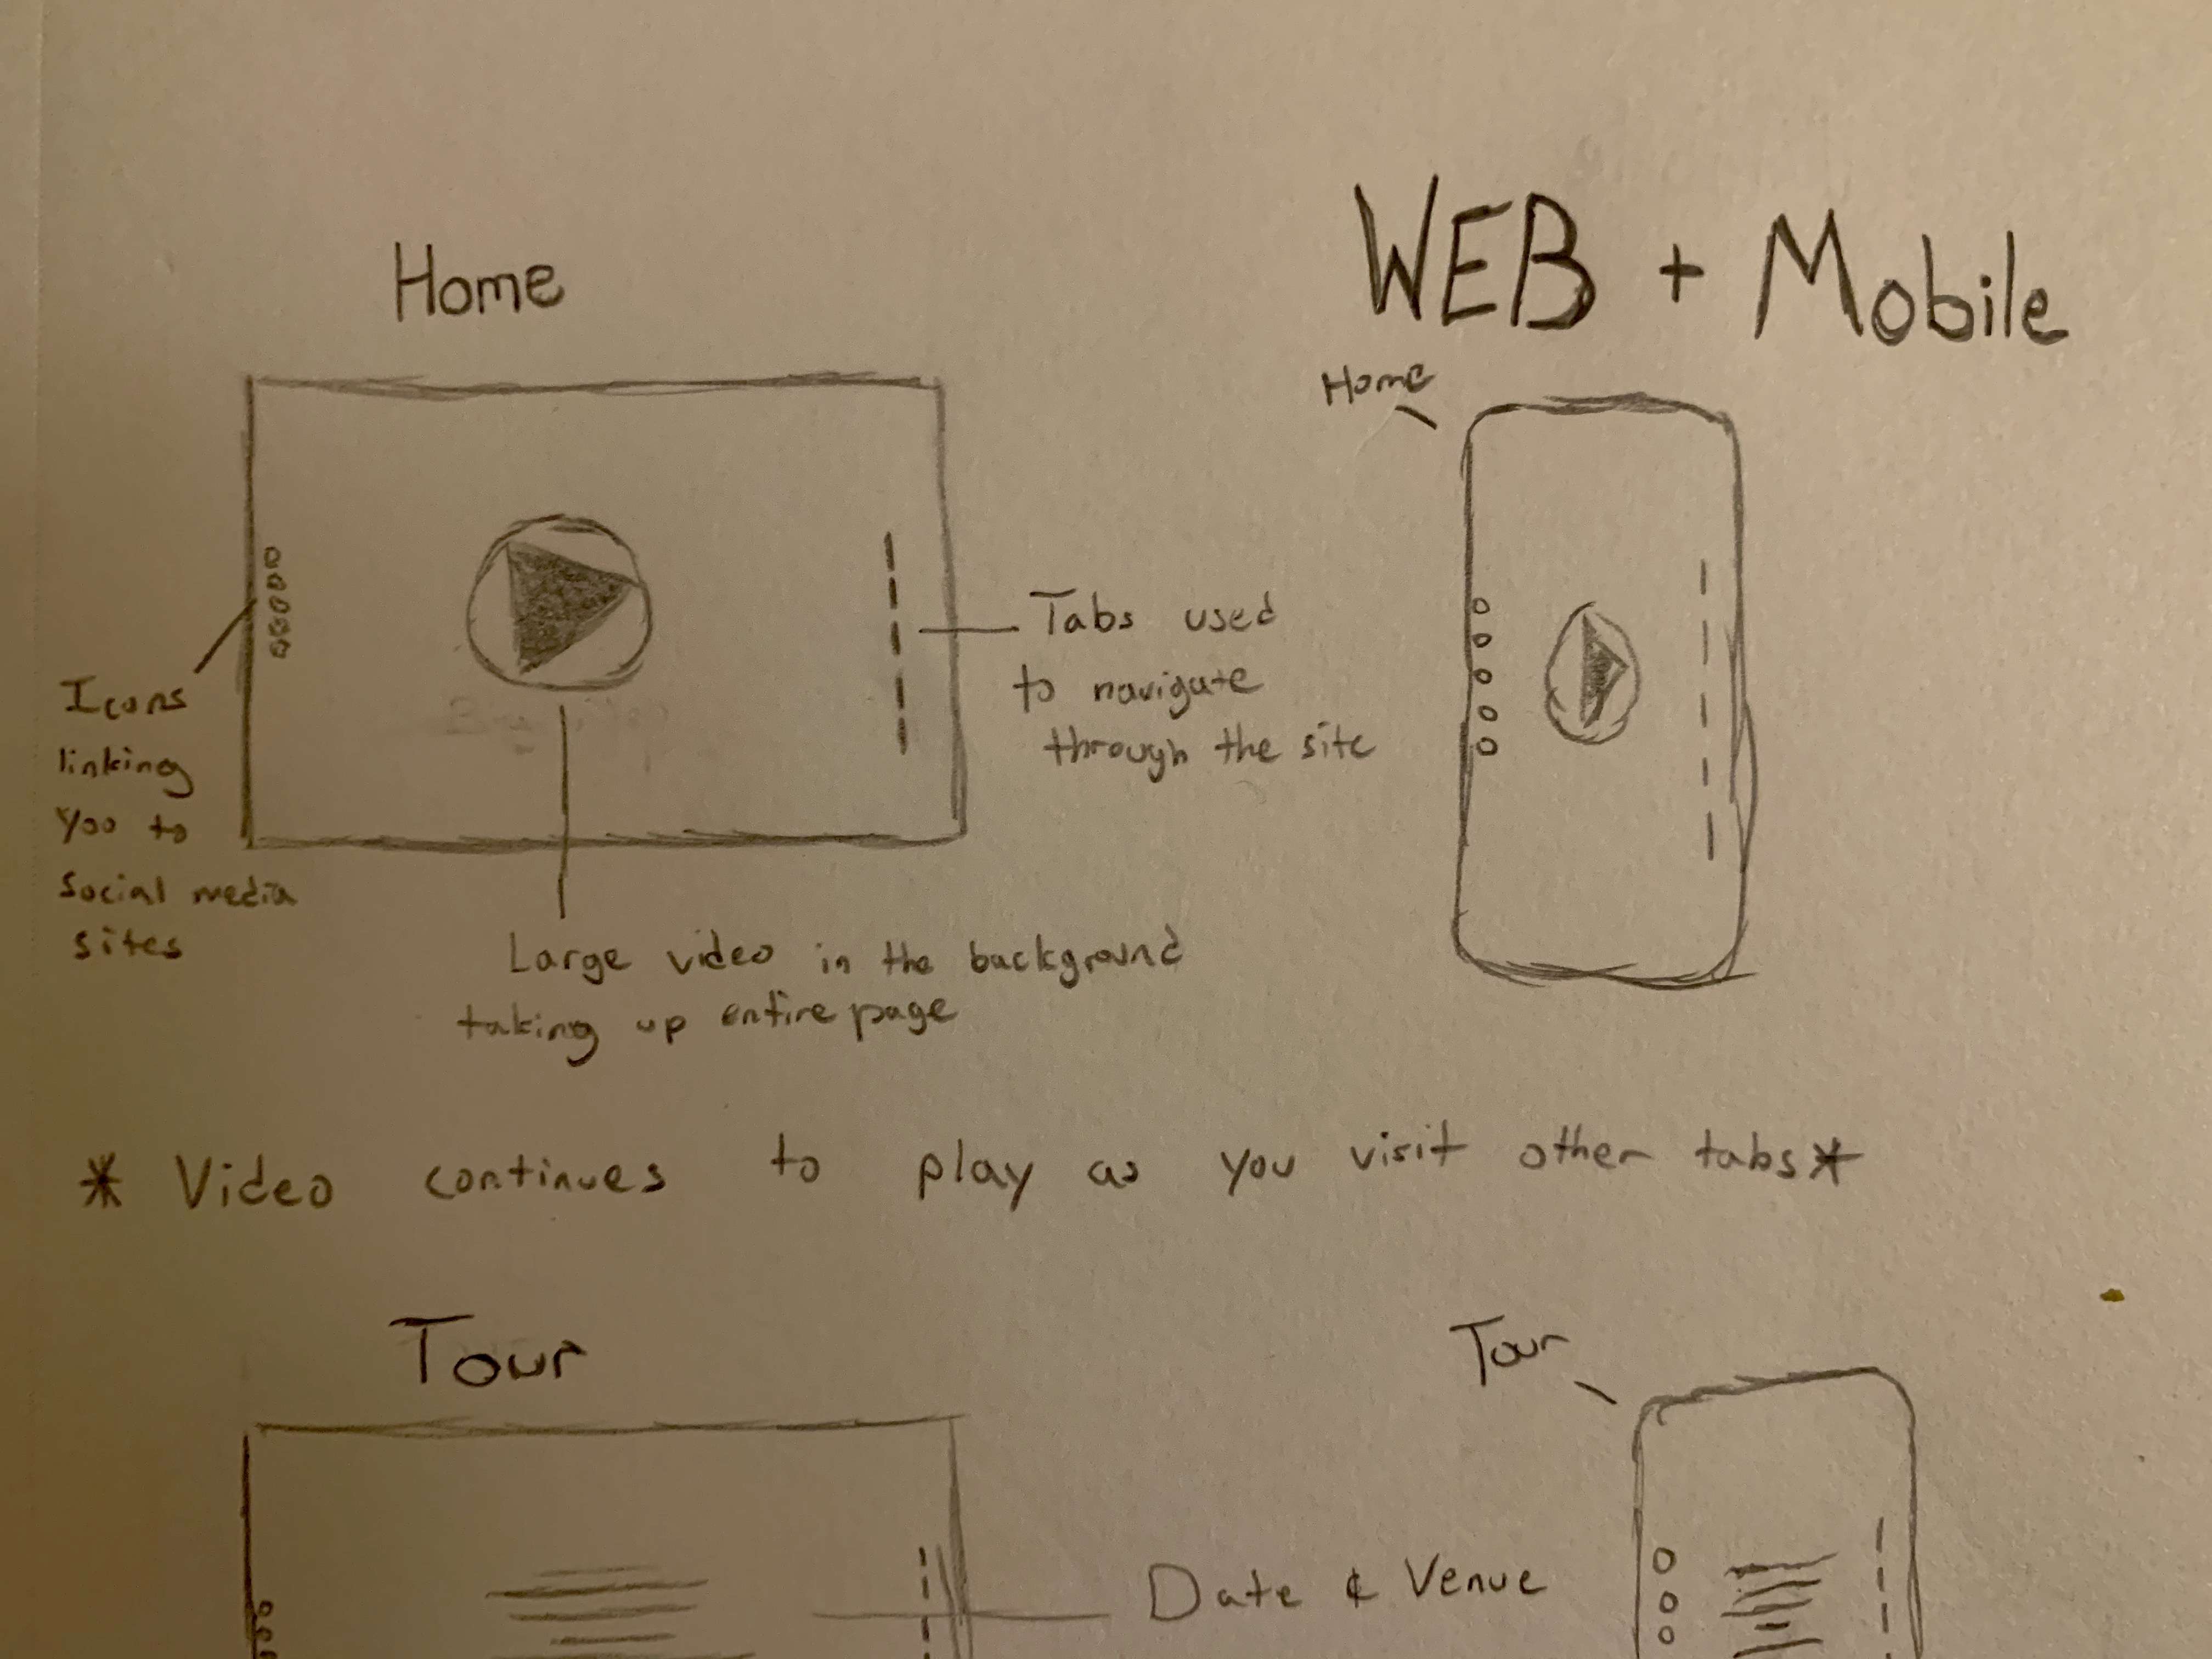 WEB + Mobile
Home
Home
Icons
linking
you to
social media
sites
Tabs used
to navigate
through the site
Large video in the background
taking up entire page
* Video continues to play as you visit other tabs*
Tour
Tour
Date & Venue